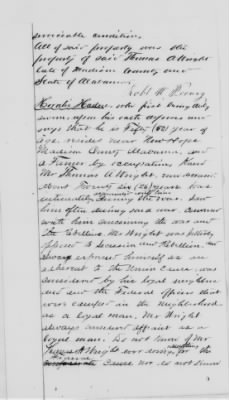 serviceable condition.
All of said property was the
property of said Thomas A Wright
late of Madison County and
State of Alabama.
Robt W
who first being duly
sworn, upon his oath deposes and
says that he is Fifty (52) year of
age, resides near New Hope
Madison County Alabama, and
a Farmer by occupation, Knew
Mr Thomas A Wright, now deceased
about twenty six (26) years was
intimately acquainted with him during the war. Saw
him often during said war conversed
with him concerning the war and
the Rebellion. Mr Wright was bitterly
opposed to Secession and Rebellion. and
always expressed himself as an
adherent to the Union Cause, was
considered by his loyal neighbors
and and the Federal officers that
were camped in the neighborhood
as a loyal man. Mr Wright
always as a
loyal man. Do not know of Mr
Thomas A Wright ever doing anything for the
Cause nor do not know